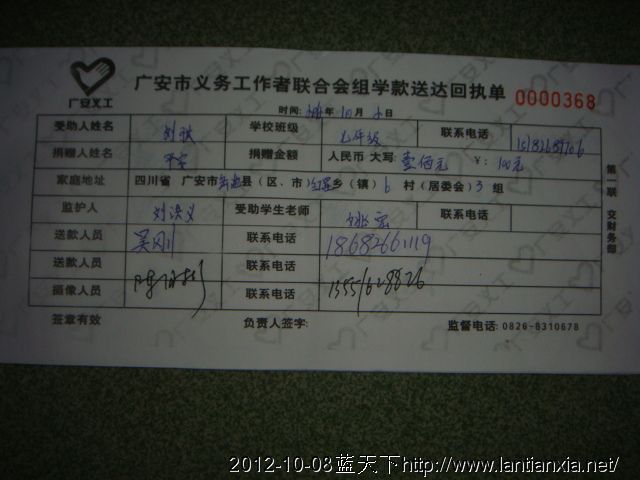 广安义工
广安市义务工作者联合会组学款送达回执单
0000368
时间: 年10月 日
受助人姓名 学校班级 七年级 联系电话
捐赠人姓名 平安 捐赠金额 人民币 大写: 壹佰元 ¥: 100元
家庭地址 四川省 广安市 县(区、市) 乡(镇) 6 村(居委会) 3 组
监护人 刘洪义 受助学生老师 姚宏 联系电话
送款人员 吴刚 联系电话 18682661119
送款人员 联系电话
摄像人员 联系电话 13551628826
第一联 交财务部
签章有效 负责人签字: 监督电话: 0826-8310678
2012-10-08蓝天下http://www.lantianxia.net/